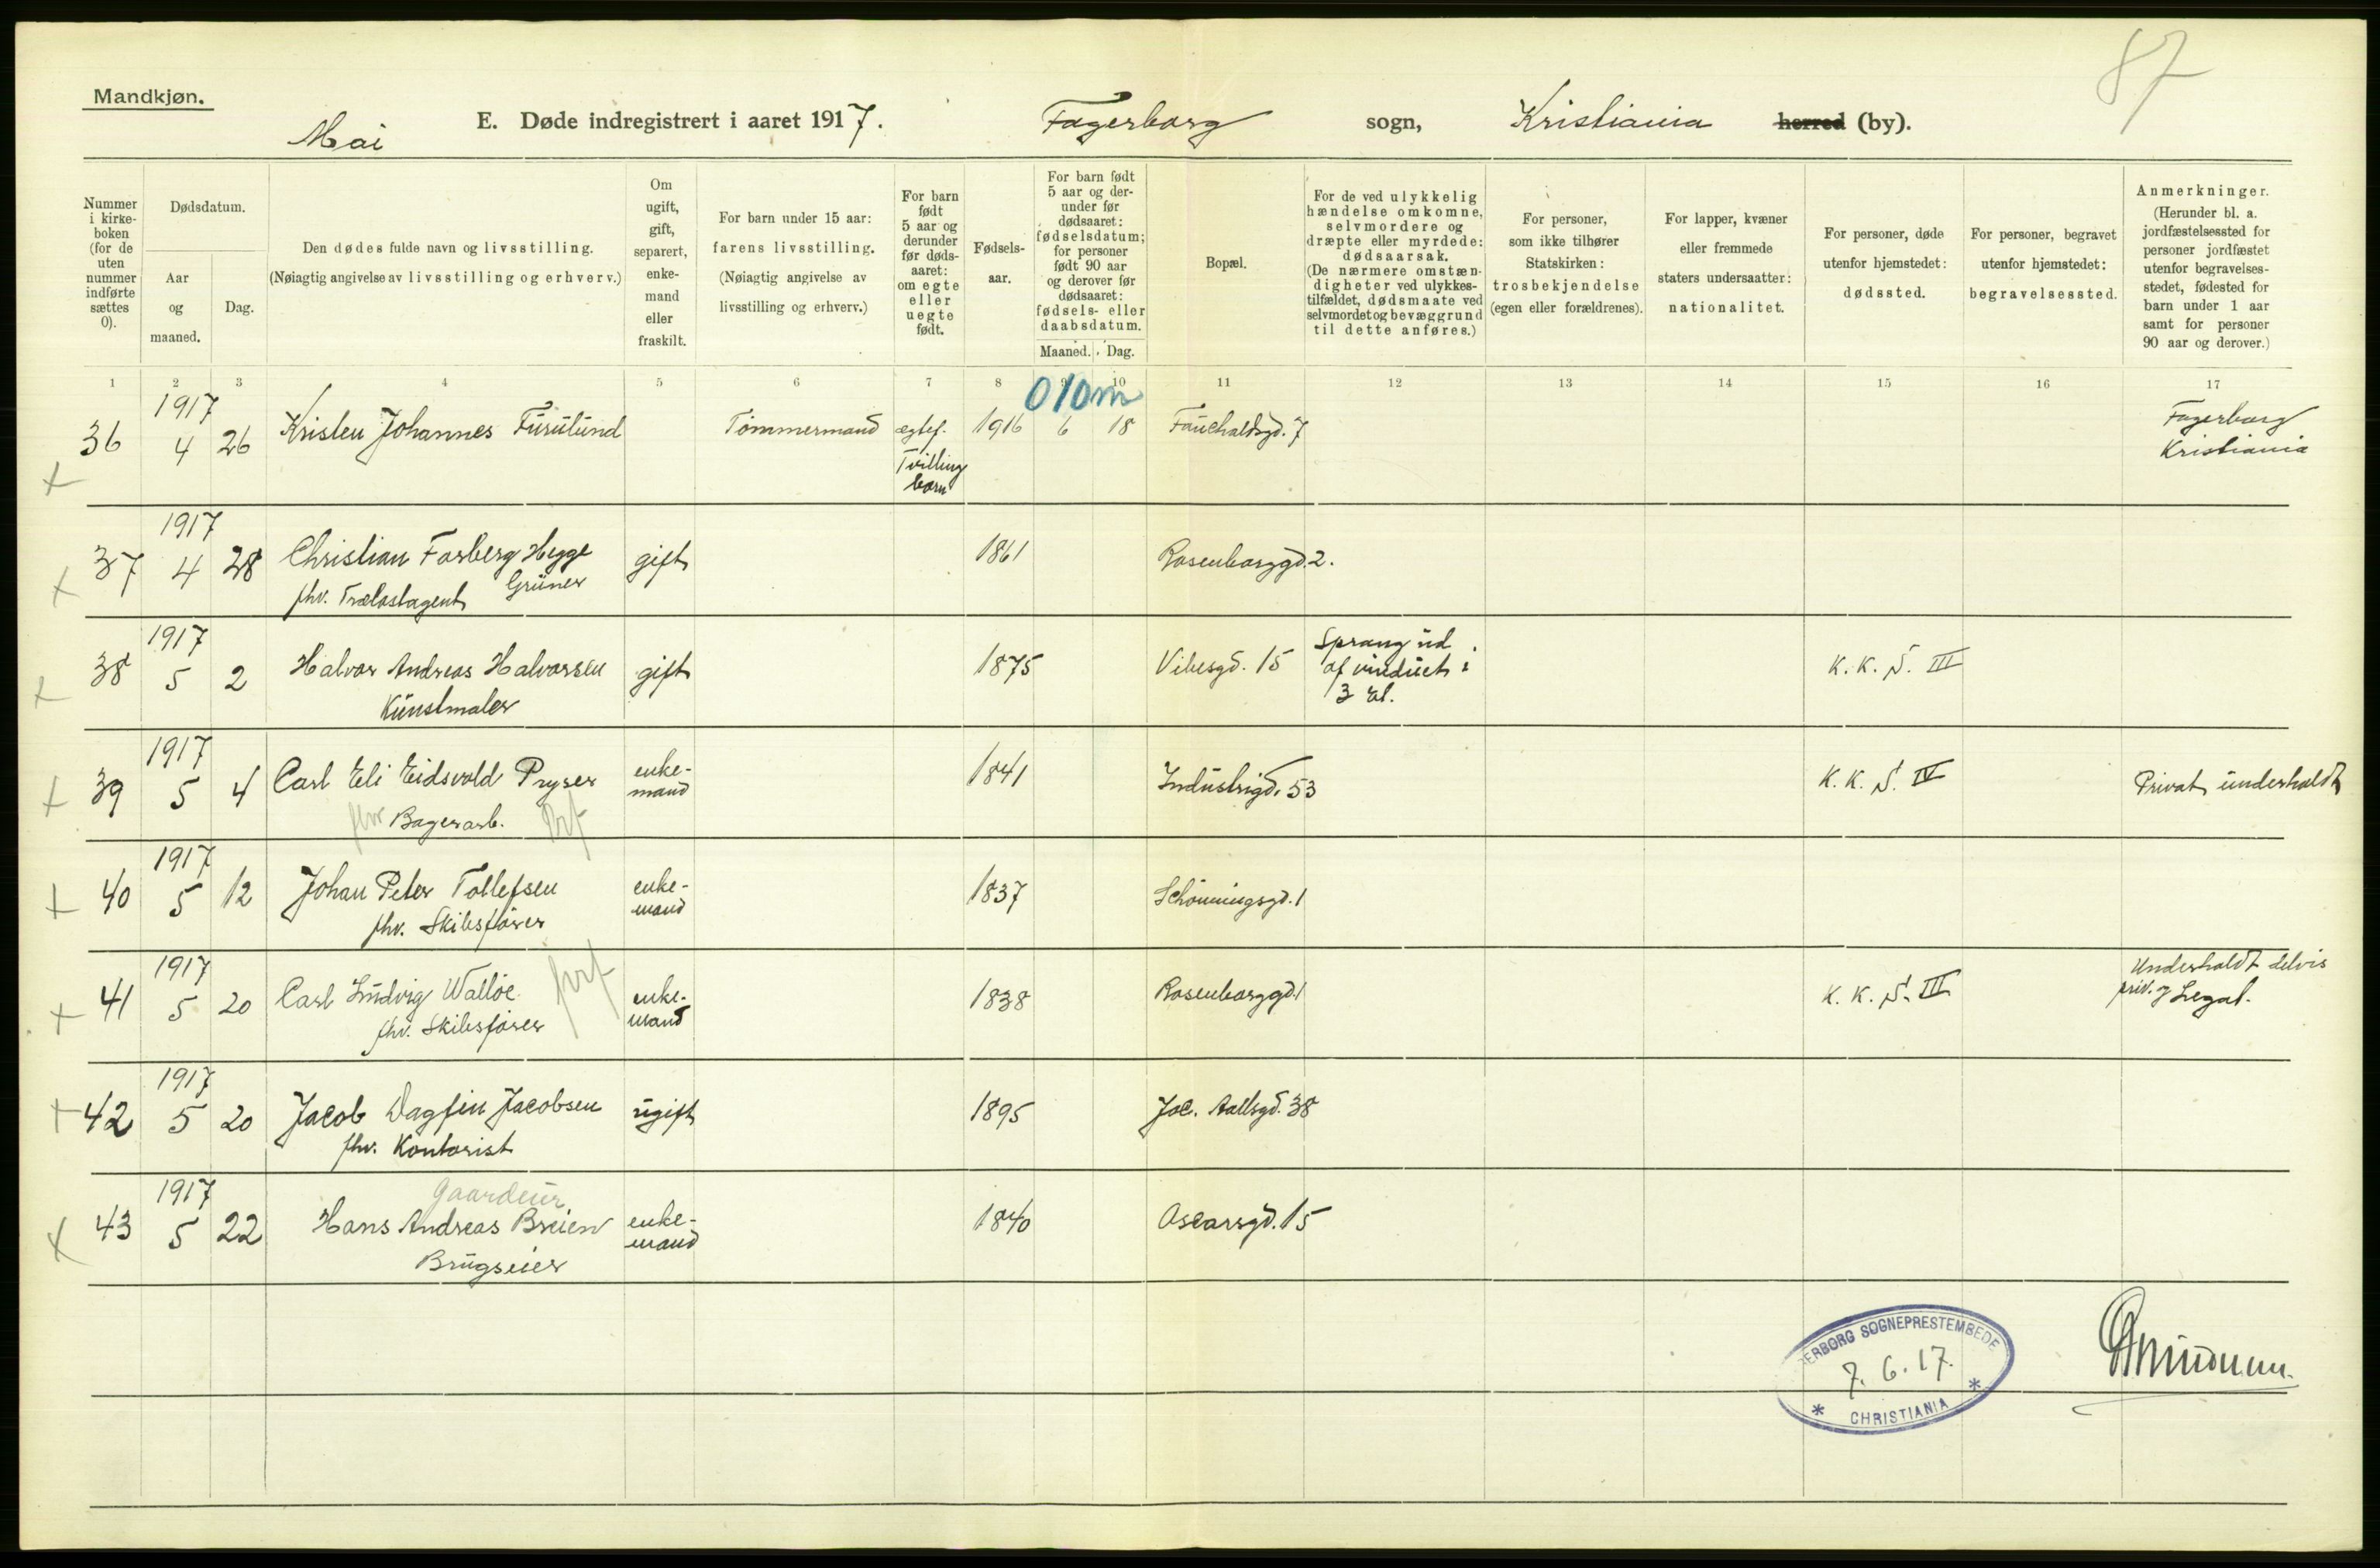 87
Mandkjøn.
Mai
E. Døde indregistrert i aaret 1917.
Fagerborg sogn, Kristiania herred (by).
Nummer i kirke-boken (for de uten nummer indførte sættes 0).
Dødsdatum.
Aar og maaned.
Dag.
Den dødes fulde navn og livsstilling.
(Nøiagtig angivelse av livsstilling og erhverv.)
Om ugift, gift, separert, enke-mand eller fraskilt.
For barn under 15 aar:
farens livsstilling.
(Nøiagtig angivelse av livsstilling og erhverv.)
For barn født 5 aar og derunder før døds-aaret: om egte eller uegte født.
Fødsels-aar.
For barn født 5 aar og der-under før dødsaaret: fødselsdatum; for personer født 90 aar og derover før dødsaaret: fødsels- eller daabsdatum.
Maaned. Dag.
Bopæl.
For de ved ulykkelig hændelse omkomne, selvmordere og dræpte eller myrdede: dødsaarsak.
(De nærmere omstæn-digheter ved ulykkes-tilfældet, dødsmaate ved selvmordet og bevæggrund til dette anføres.)
For personer, som ikke tilhører Statskirken: trosbekjendelse (egen eller forældrenes).
For lapper, kvæner eller fremmede staters undersaatter: nationalitet.
For personer, døde utenfor hjemstedet: dødssted.
For personer, begravet utenfor hjemstedet: begravelsessted.
Anmerkninger.
(Herunder bl. a. jordfæstelsessted for personer jordfæstet utenfor begravelses-stedet, fødested for barn under 1 aar samt for personer 90 aar og derover.)
1 2 3 4 5 6 7 8 9 10 11 12 13 14 15 16 17
010m
1917
36 4 26 Kristen Johannes Furulund Tømmermand ægtef. 1916 6 18 Fauchaldsgd. 7 Fagerborg
Tvilling Kristiania
barn
1917
37 4 28 Christian Farberg Hegge gift 1861 Rosenborggd. 2.
fhv. Trælastagent Grüner
1917
38 5 2 Halvor Andreas Halvorsen gift 1875 Vibesgd. 15 Sprang ud K. K. S. III
Kunstmaler af vinduet i
3 et.
1917
39 5 4 Carl Eli Eidsvold Pryser enke- 1841 Industrigd. 53 K. K. S. IV Privat underholdt
fhv Bagerarb. mand
1917
40 5 12 Johan Peter Tollefsen enke- 1837 Schøningsgd. 1
fhv. Skibsfører mand
1917
41 5 20 Carl Ludvig Walløe enke- 1838 Rosenborggd. 1 K. K. S. III Underholdt delvis
fhv. Skibsfører mand priv. og Legat.
1917
42 5 20 Jacob Dagfin Jacobsen ugift 1895 Jac. Aallsgd. 38
fhv. Kontorist
1917
Gaardeier
43 5 22 Hans Andreas Breien enke- 1840 Oscarsgd. 15
Brugseier mand
ERBORG SOGNEPRESTEMBEDE
7. 6. 17.
* CHRISTIANIA *